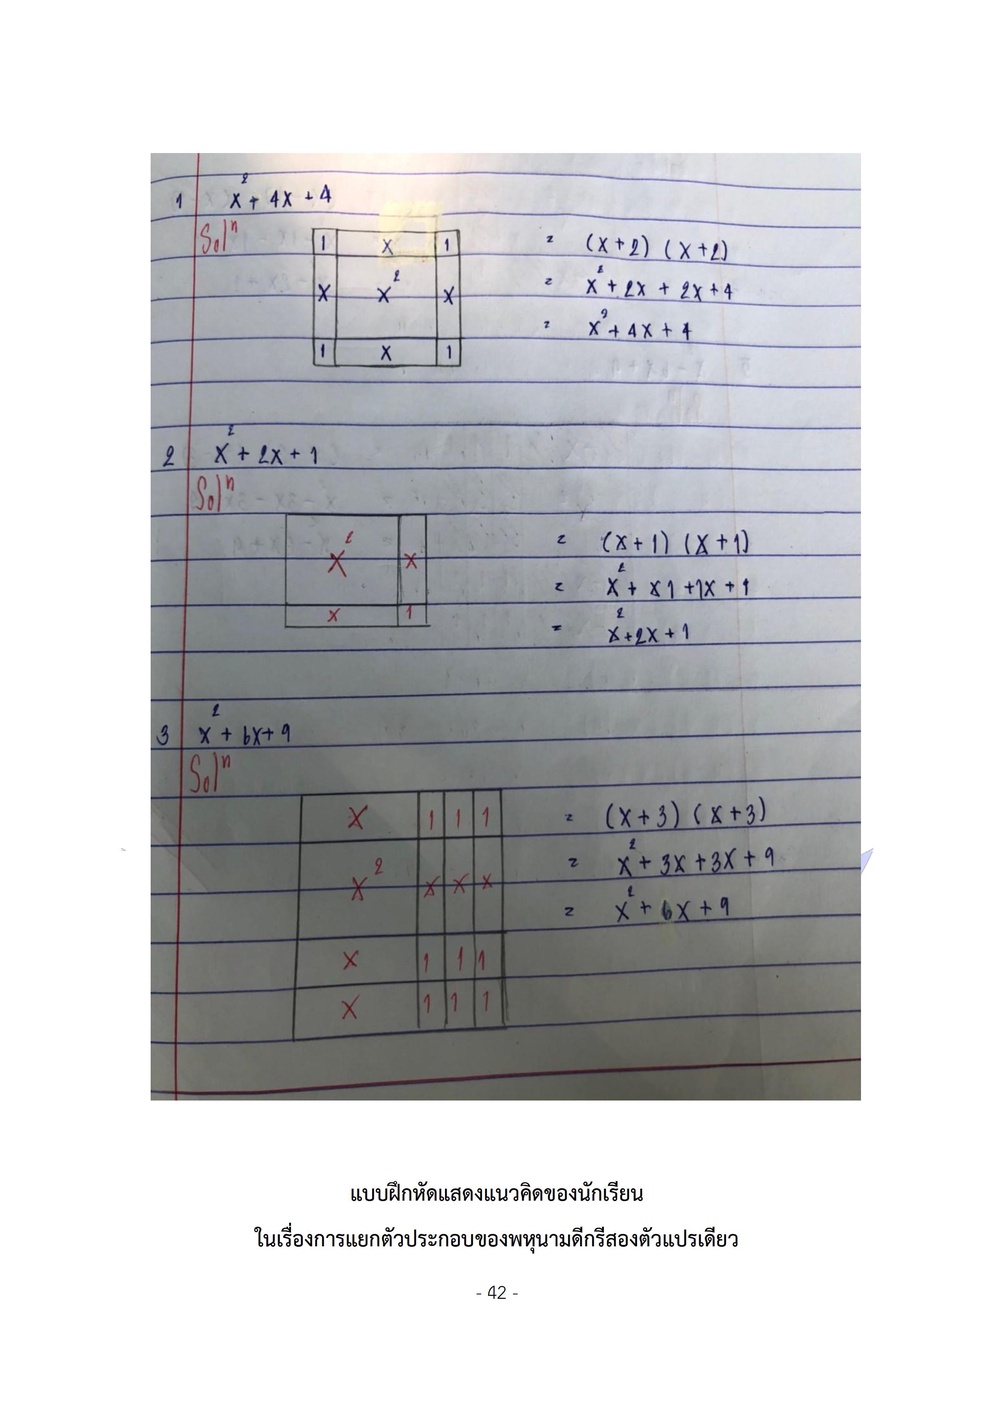 1 x² + 4x + 4
Solⁿ
1 x 1 = (x+2) (x+2)
x x² x = x² + 2x + 2x + 4
1 x 1 = x² + 4x + 4
2 x² + 2x + 1
Solⁿ
x² x = (x+1) (x+1)
x 1 = x² + x1 + 1x + 1
= x² + 2x + 1
3 x² + 6x + 9
Solⁿ
x 1 1 1 = (x+3) (x+3)
x² x x x = x² + 3x + 3x + 9
= x² + 6x + 9
x 1 1 1
x 1 1 1
แบบฝึกหัดแสดงแนวคิดของนักเรียน
ในเรื่องการแยกตัวประกอบของพหุนามดีกรีสองตัวแปรเดียว
- 42 -